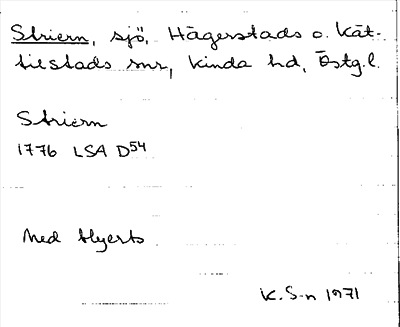 Striern, sjö, Hägerstads o. Kät-
tilstads snr, Kinda hd, Östg.l.
Striern
1776 LSA D54
Med Hyerts
K. S-n 1971